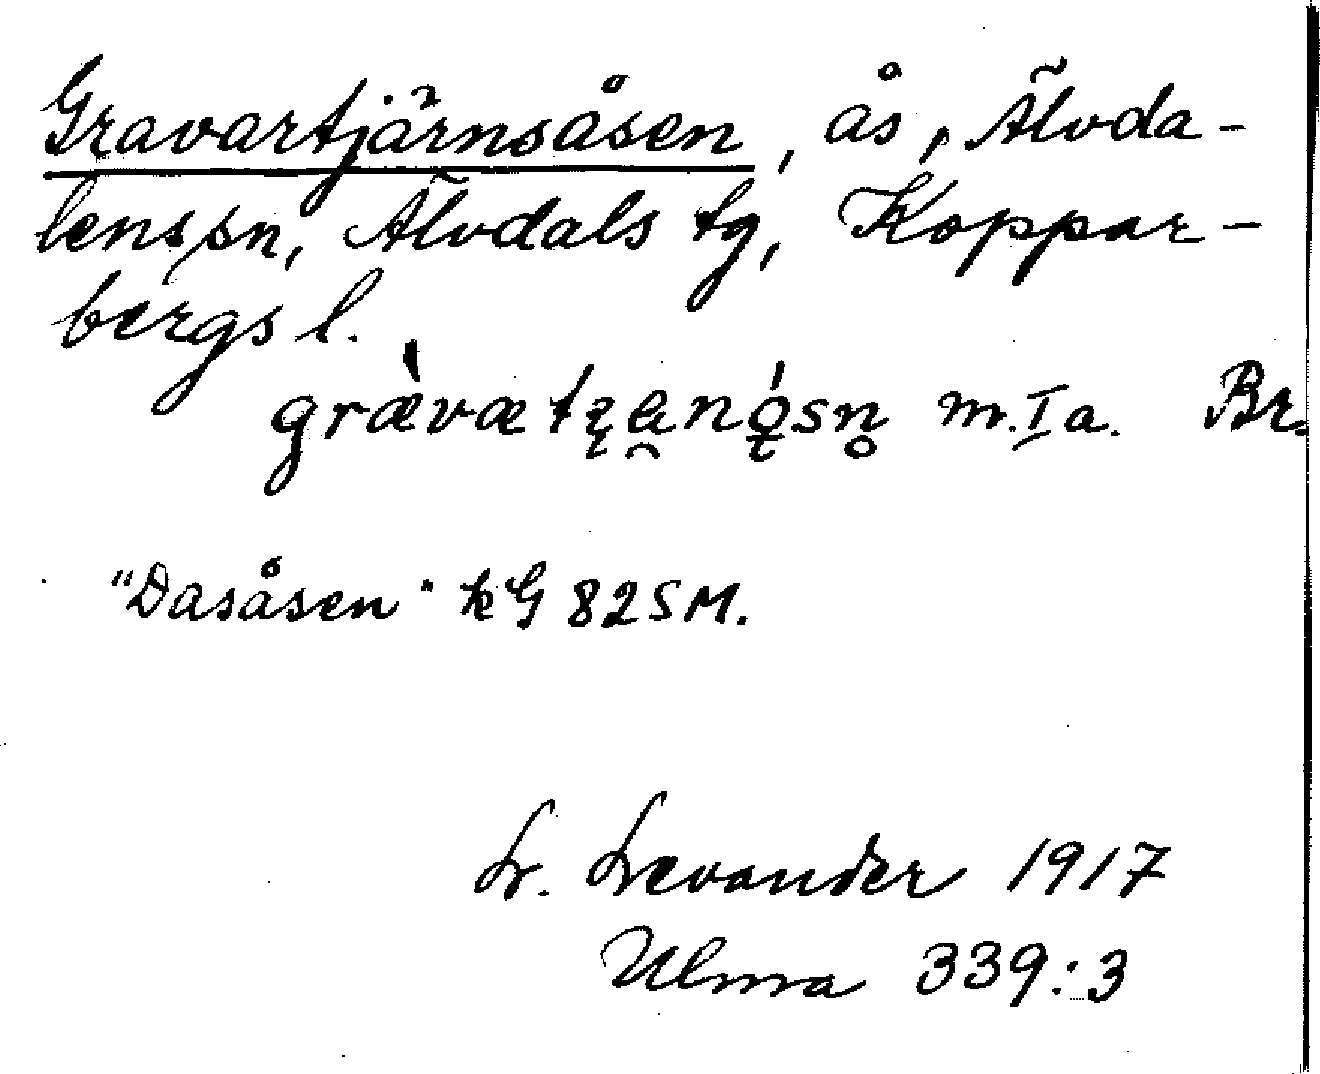 Gravartjärnsåsen, ås, Älvda-
lens sn, Älvdals tg, Koppar-
bergs l.
m. I a. Br.
"Dasåsen" kG 82 SM.
L. Levander 1917
Ulma 339:3